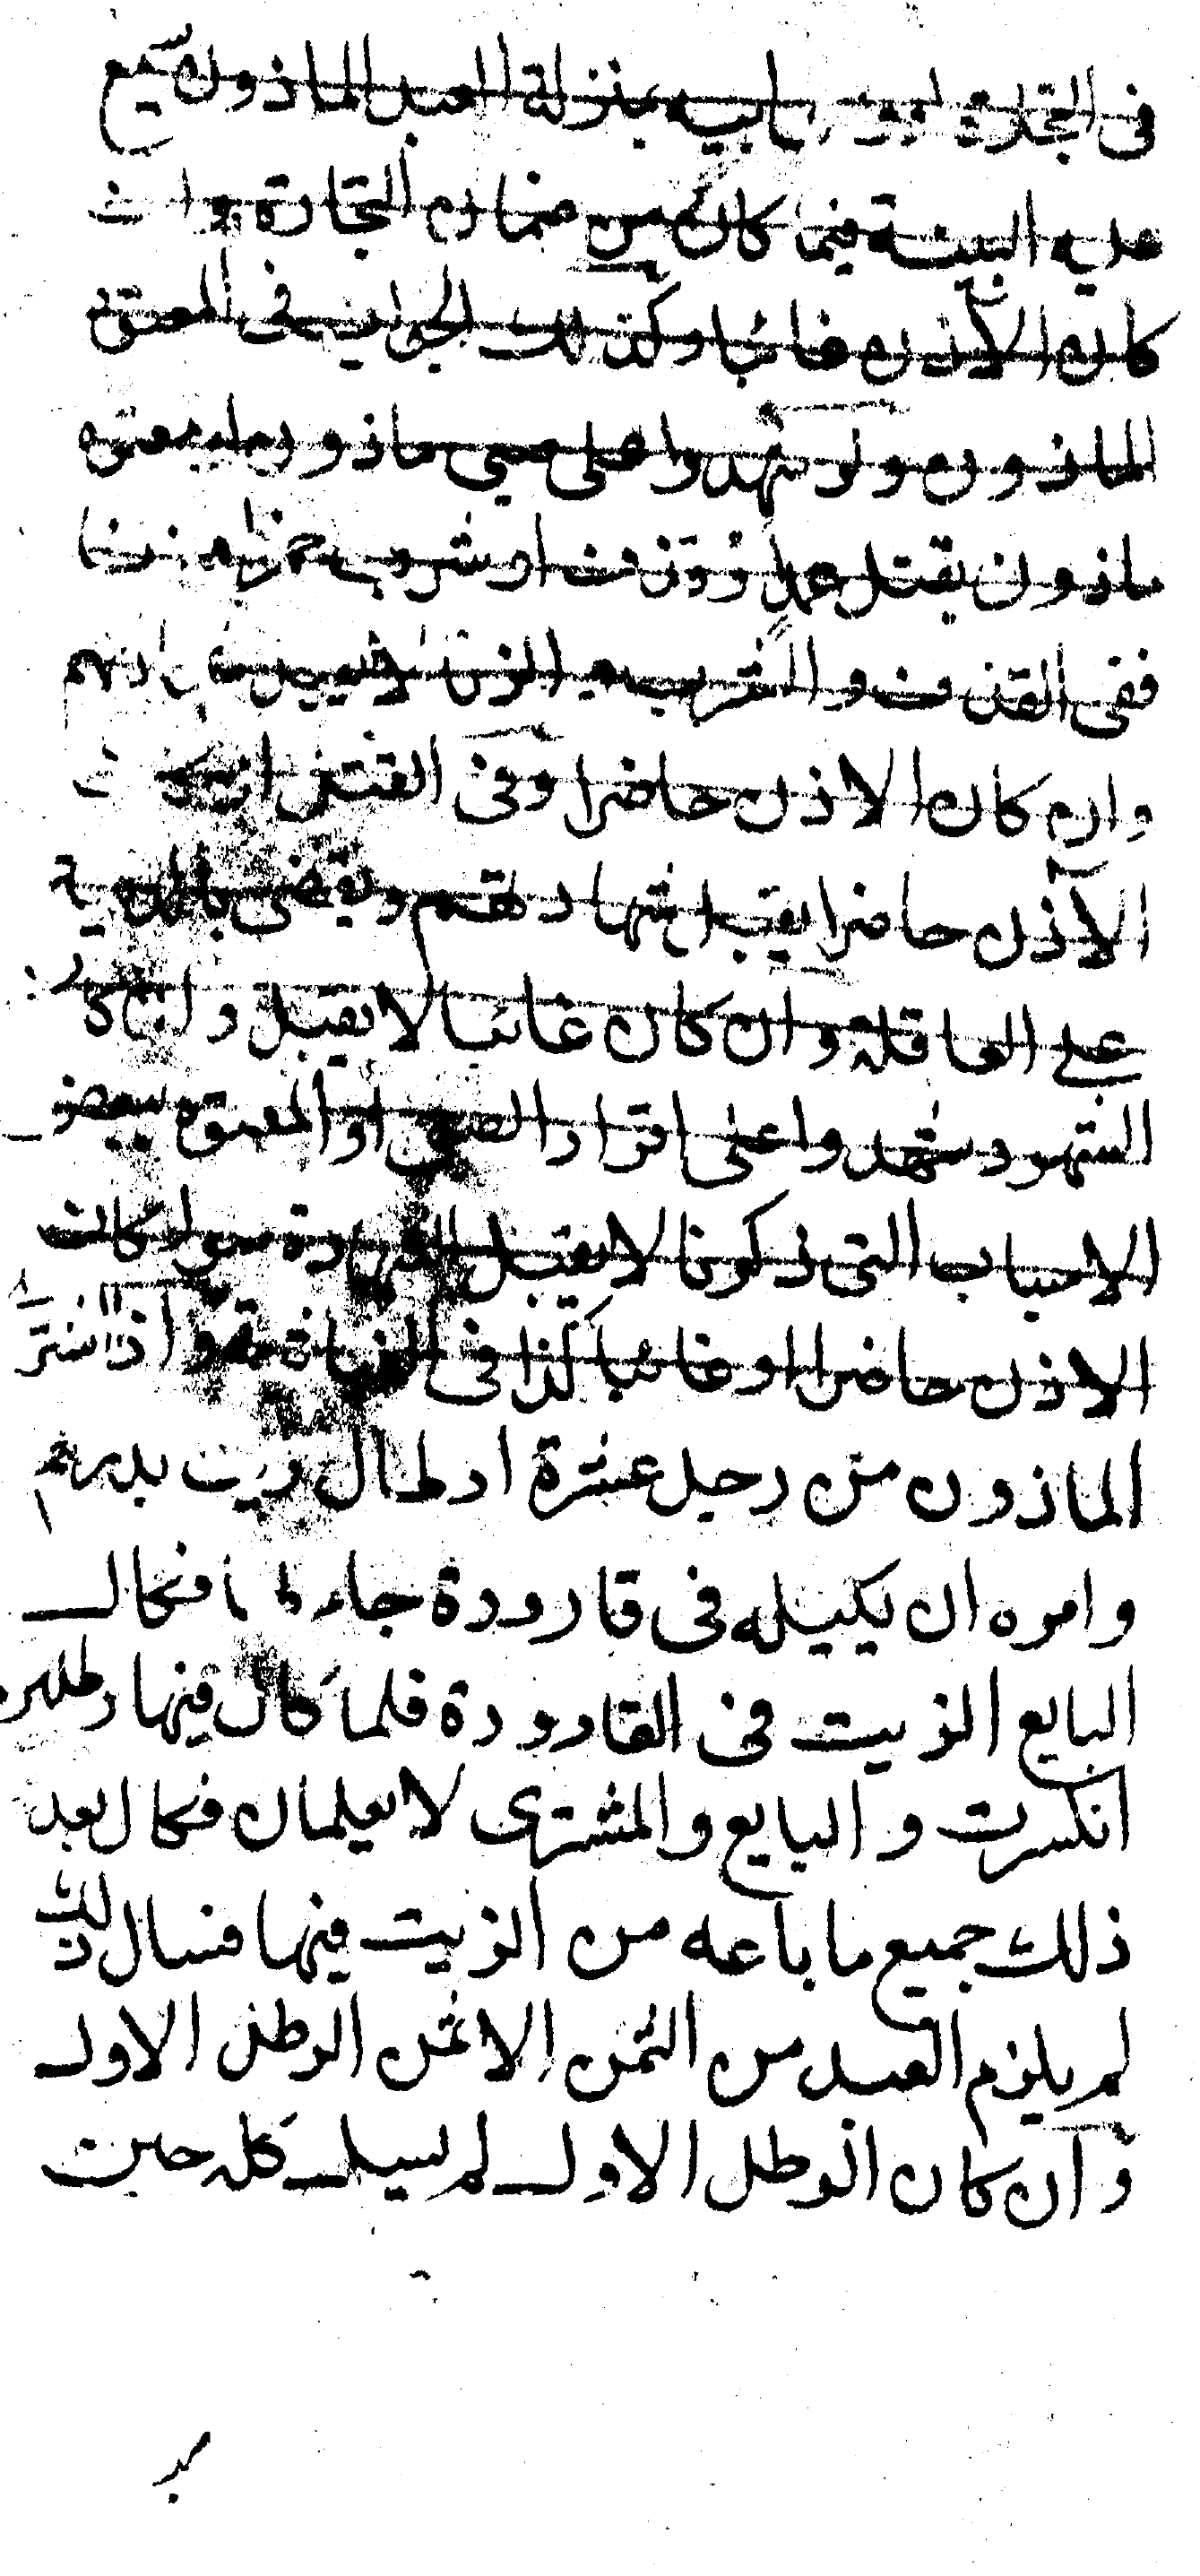 فى التجارة اذن ابيه بمنزلة العبد الماذون يسمع
عليه البينة فيما كان من ضمان التجارة وان
كان الاذن غائبا وكذلك الجواب فى المعتوه
الماذون ولو شهدوا على صبى ماذون او معتوه
ماذون بقتل عمد او قذف او شرب خمر او زنا
ففى القذف والشرب والزنا لا تقبل شهادتهم
وان كان الاذن حاضرا وفى القتل ان كان
الاذن حاضرا يقبل شهادتهم ويقضى بالدية
على العاقلة وان كان غائبا لا يقبل ولو كان
الشهود شهدوا على اقرار الصبى او المعتوه ببعض
الاسباب التى ذكرنا لا يقبل الشهادة سواء كان
الاذن حاضرا او غائبا كذا فى الذخيرة واذا اشترى
الماذون من رجل عشرة ارطال زيت بدرهم
وامره ان يكيله فى قارورة جاء بها فكال
البايع الزيت فى القارورة فلما كال فيها رطلين
انكسرت والبايع والمشترى لا يعلمان فكال بعد
ذلك جميع ما باعه من الزيت فيها فسال ذلك
لم يلزم العبد من الثمن الا ثمن الرطل الاول
وان كان الرطل الاول لم يسيل كله حين